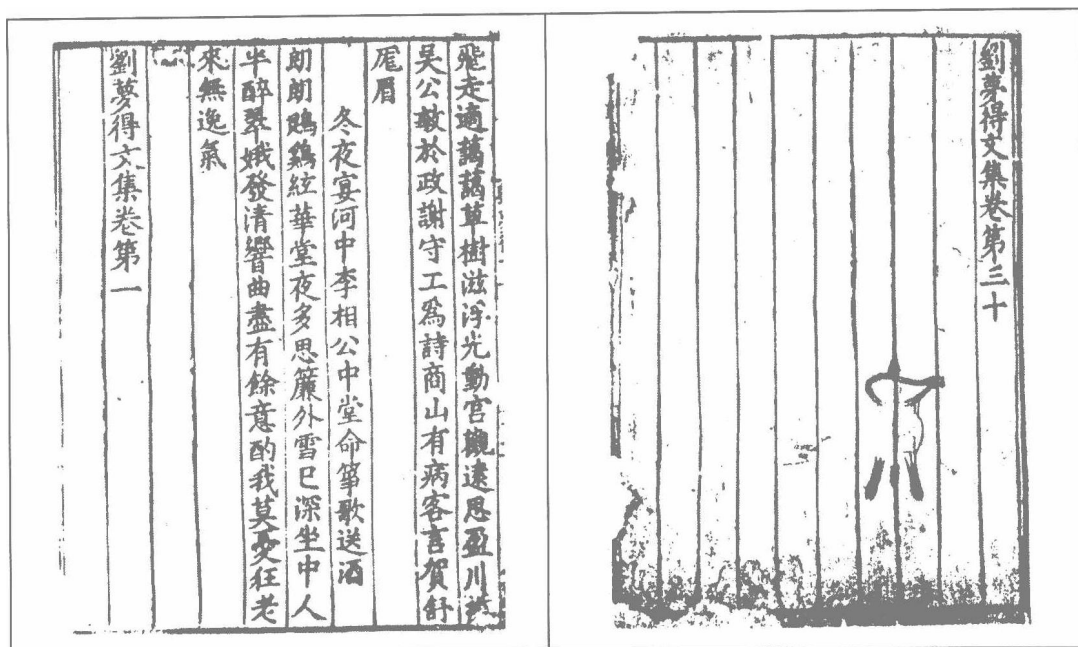 劉夢得文集卷第三十
飛走適藹藹草樹滋浮光動宮觀遠思盈川
吳公敏於政謝守工爲詩商山有病客言賀舒
厖眉
冬夜宴河中李相公中堂命箏歌送酒
朗朗鵾鷄絃華堂夜多思簾外雪已深坐中人
半醉翠娥發清響曲盡有餘意酌我莫憂狂老
來無逸氣
劉夢得文集卷第一